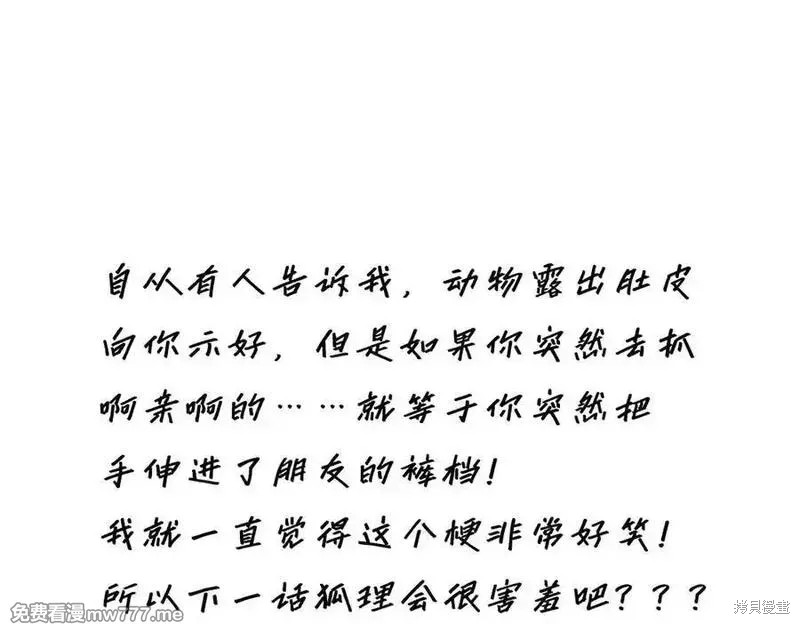 自从有人告诉我，动物露出肚皮
向你示好，但是如果你突然去抓
啊亲啊的……就等于你突然把
手伸进了朋友的裤档！
我就一直觉得这个梗非常好笑！
所以下一话狐理会很害羞吧？？？
免费看漫mw777.me
拷貝漫畫